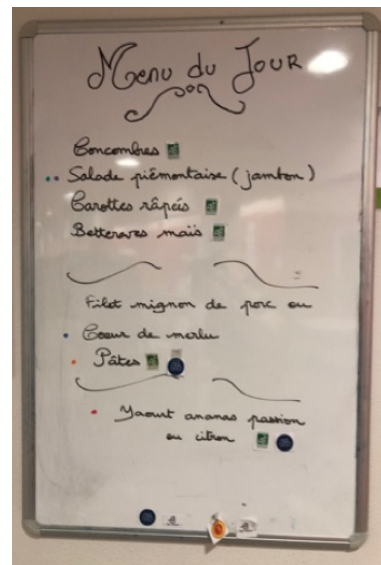 Menu du Jour
Concombres
Salade piémontaise (jambon)
Carottes râpées
Betteraves maïs
Filet mignon de porc ou
Coeur de merlu
Pâtes
Yaourt ananas passion
ou citron